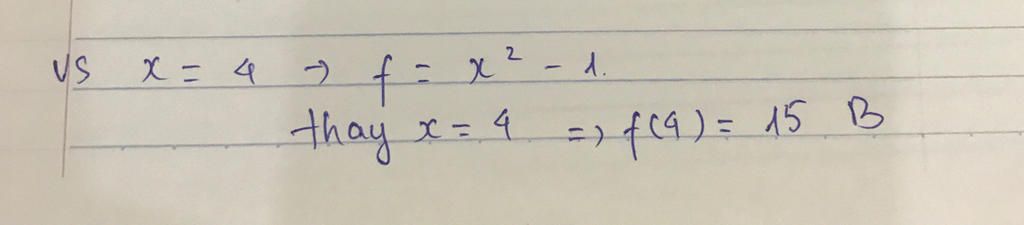 vs x = 4 → f = x² - 1.
thay x = 4 => f(4) = 15 B